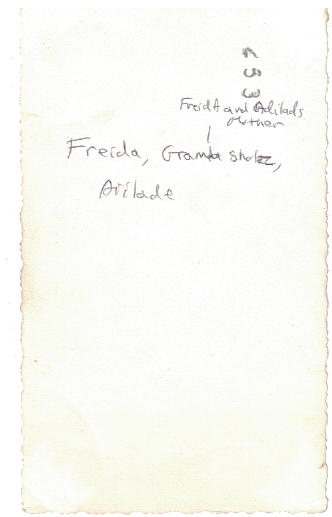 533
Freida and Adilads
Mother
Freida, Grandma Sholzz,
Adilade